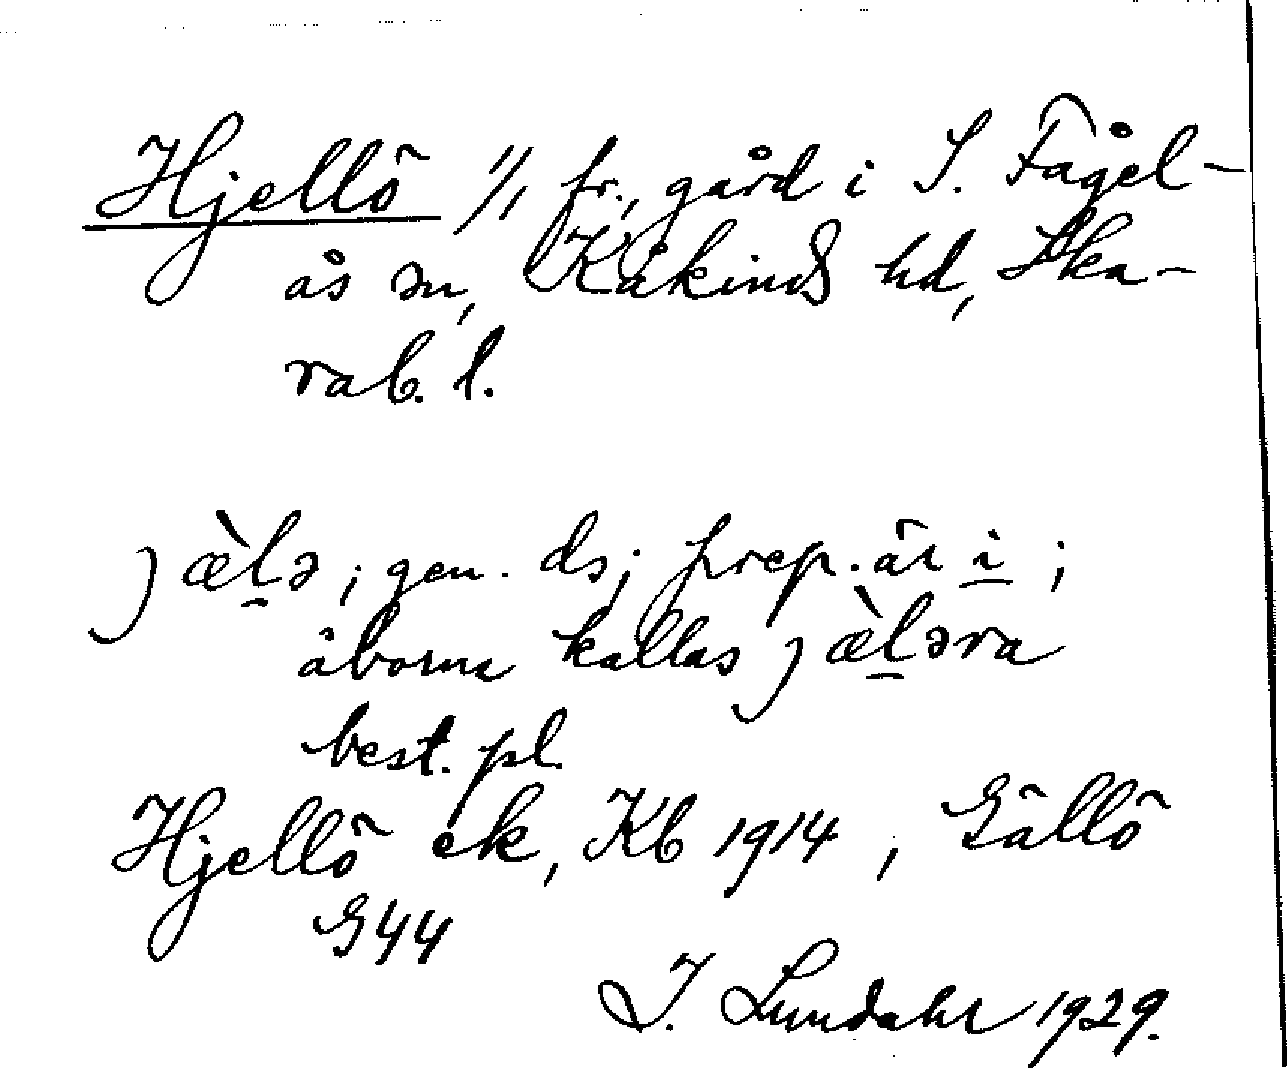 Hjellö 1/1 fr., gård i S. Fågel-
ås sn, Kåkinds hd, Ska-
rab. l.
jæ̀l̠ə ; gen. ds; prep. är i ;
åborna kallas jæ̀l̠əra
best. pl.
Hjellö ek, Kb 1914 , Gällö
G44
I. Lundahl 1929.